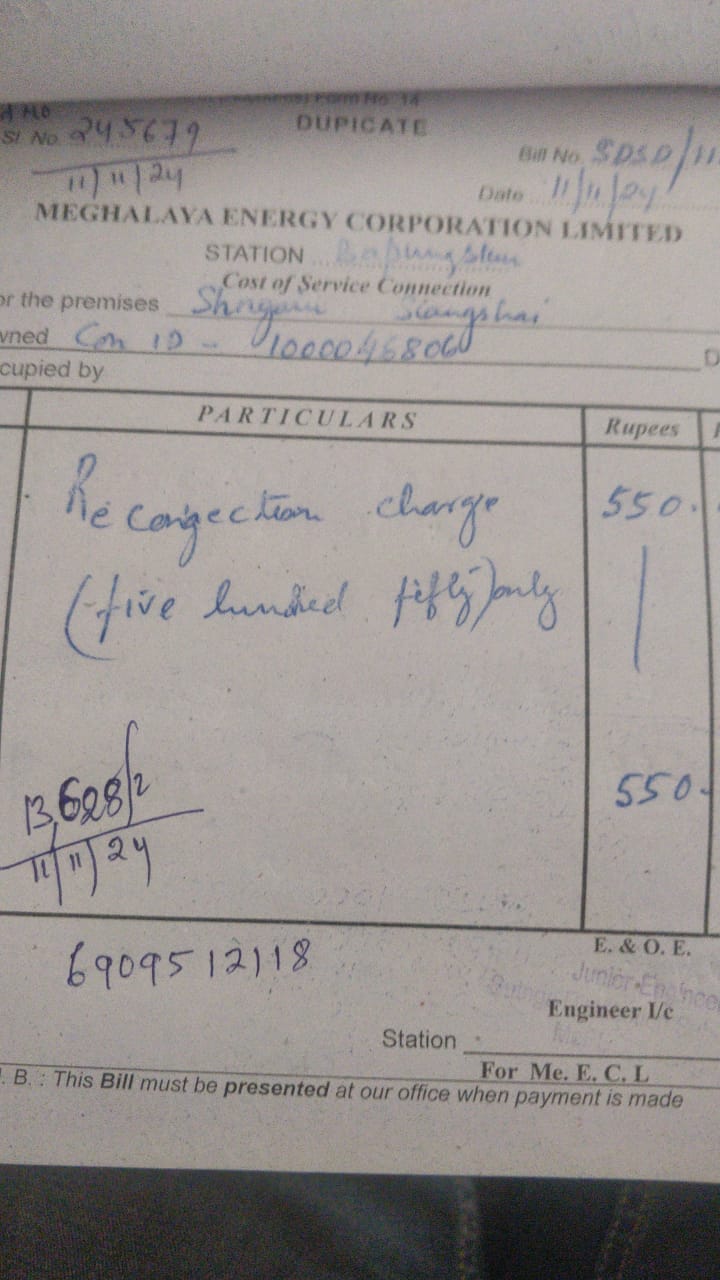 Form No. 14
DUPICATE
Sl. No. 245679
11/11/24
Bill No. SDSD/11
Date 11/11/24
MEGHALAYA ENERGY CORPORATION LIMITED
STATION
Cost of Service Connection
or the premises Siangshai
wned Con ID - 10000468060
cupied by
PARTICULARS Rupees
Reconnection charge 550.
(five hundred fifty) only
13,628/2
11/11/24
550.
6909512118
E. & O. E.
Junior Engineer
Engineer I/c
Station
For Me. E. C. L
. B. : This Bill must be presented at our office when payment is made